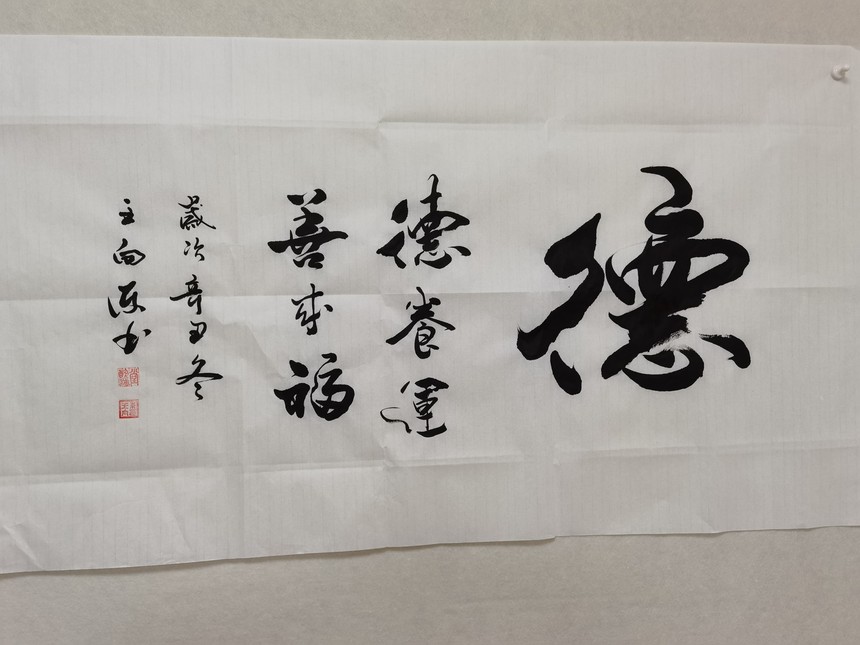 德
德養運
善成福
歲次辛丑冬
王向阳书